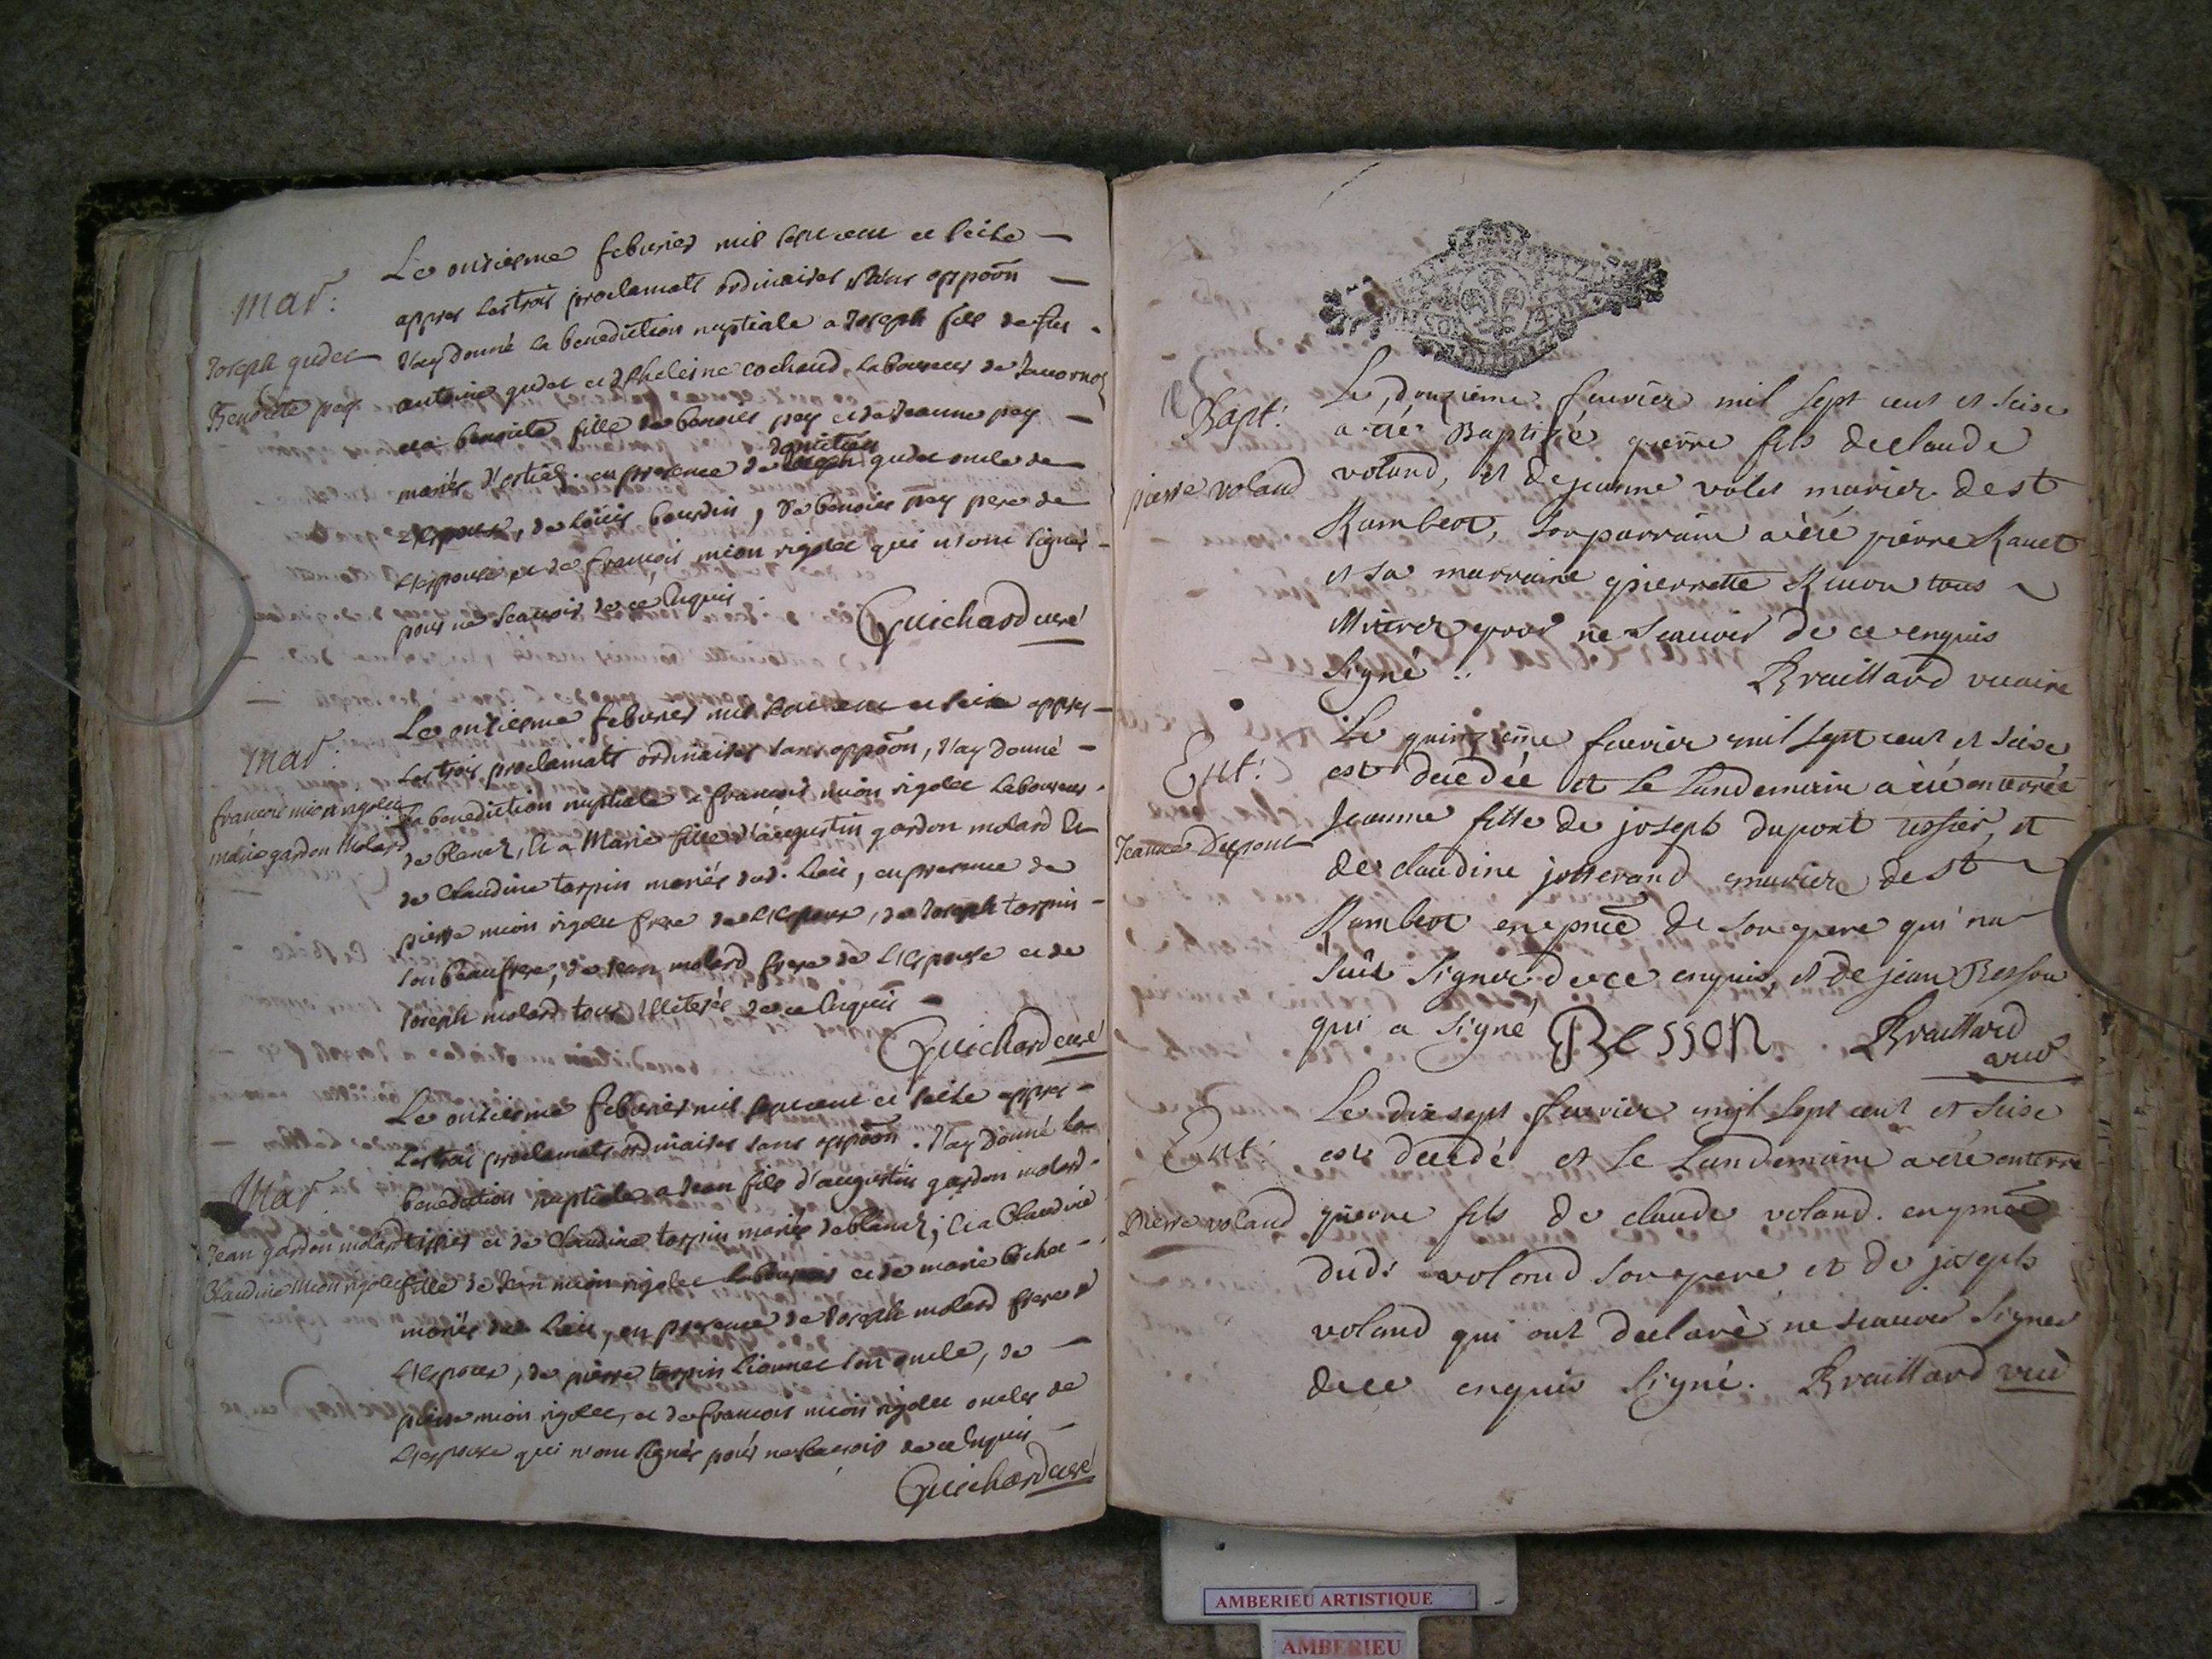 Mar:
Joseph gudet
Benoite pey
Le onziesme febvrier mil sept cent et seize
appres les trois proclamats ordinaires sans oppoõn
J'ay donné la benediction nuptiale a Joseph fils de feu
antoine gudet et d'heleine cochand, laboureur de
et a benoite fille de benoist pey et de Jeanne pey
mariés d'. en presence de gudet oncle de
L'espoux, de Loüis bourdin, de benoist pey pere de
L'espouse et de francois mion rigolet qui n'ont signés
pour ne scavoir de ce Enquis
Guichard curé
Mar:
francois mion rigolet
marie gardon Molard
Le onziesme febvrier mil sept cent et seize appres
les trois proclamats ordinaires sans oppoõn, J'ay donné
la benediction nuptiale a francois mion rigolet laboureur
de blanaz, et a Marie fille d'augustin gardon molard et
de Claudine tarpin mariés dud. Lieu, en presence de
pierre mion rigolet frere de L'espoux, de Joseph tarpin
son beaufrere, de Jean molard frere de L'espouse et de
Joseph molard tous Illiterés de ce Enquis
Guichard curé
Mar
Jean gardon molard
Claudine Mion rigolet
Le onziesme febvrier mil sept cent et seize appres
les trois proclamats ordinaires sans oppoõn. J'ay donné la
benediction nuptiale a Jean fils d'augustin gardon molard
tissier et de Claudine tarpin mariés de blanaz; et a Claudine
fille de Jean mion rigolet laboureur et de marie bichat
mariés dud. Lieu, en presence de Joseph molard frere de
L'espoux, de pierre tarpin Lionnet son oncle, de
pierre mion rigolet, et de francois mion rigolet oncles de
L'espouse qui n'ont signés pour ne scavoir de ce Enquis
Guichard curé
Bapt:
pierre voland
Le douzieme fevrier mil sept cent et seise
a été Baptisé pierre fils de claude
voland, et de jeanne volet mariez de st
Rambert, son parrain a été pierre Ravet
et sa marraine pierrette tous
pour ne scauoir de ce enquis
signé Braillard vicaire
Ent:
Jeanne Dupont
Le quinzieme fevrier mil sept cent et seise
est decedée et le Landemain a été enterrée
Jeanne fille de joseph dupont tissier, et
de claudine josserand mariez de st
Rambert en pnce de son pere qui n'a
sçu signer de ce enquis, et de jean Besson
qui a signé BessoN Braillard
vic
Ent:
Pierre voland
Le dixsept fevrier mil sept cent et seise
est decedé et le Landemain a été enterré
pierre fils de claude voland. en pnce
dud: voland son pere et de joseph
voland qui ont declaré ne scauoir signer
de ce enquis signé. Braillard vic
AMBERIEU ARTISTIQUE
AMBERIEU